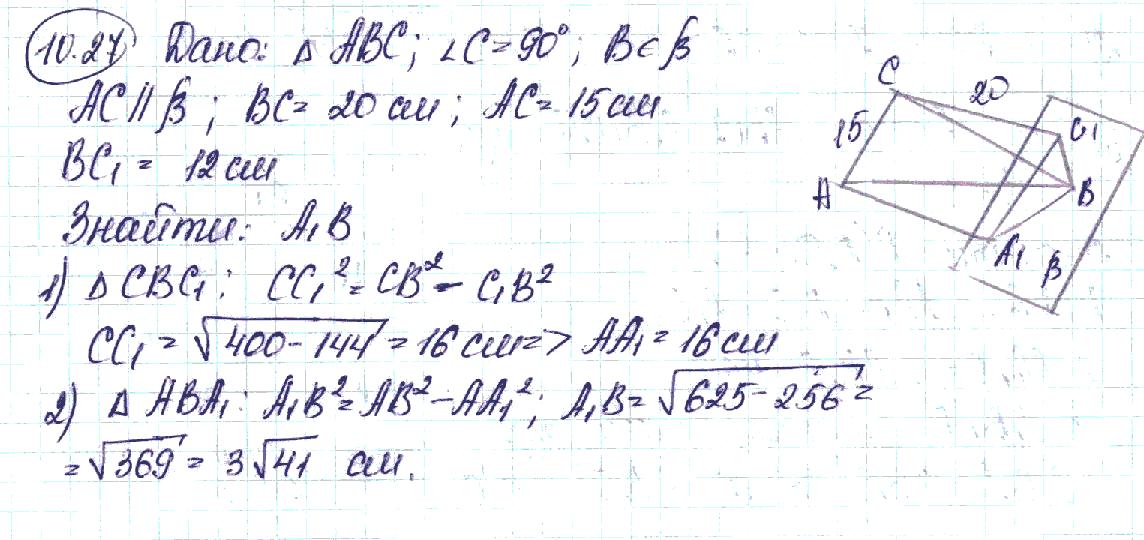 10.27 Дано: △ ABC; ∠C = 90°; B ∈ β
AC ∥ β; BC = 20 см; AC = 15 см
BC₁ = 12 см
Знайти: A₁B
1) △ CBC₁: CC₁² = CB² - C₁B²
CC₁ = √400-144 = 16 см => AA₁ = 16 см
2) △ ABA₁: A₁B² = AB² - AA₁²; A₁B = √625-256 =
= √369 = 3√41 см.
C
20
C₁
15
A
B
A₁
β